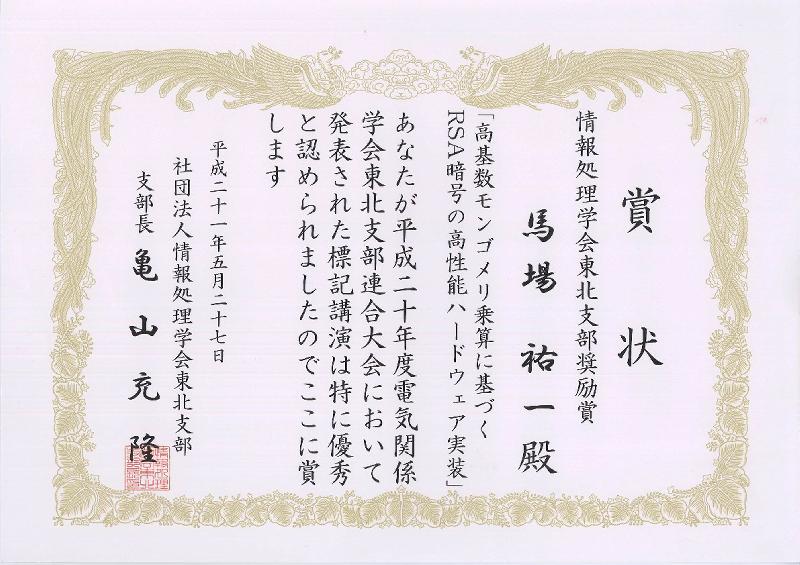 賞状
情報処理学会東北支部奨励賞
馬場祐一殿
「高基数モンゴメリ乗算に基づく
RSA暗号の高性能ハードウェア実装」
あなたが平成二十年度電気関係
学会東北支部連合大会において
発表された標記講演は特に優秀
と認められましたのでここに賞
します
平成二十一年五月二十七日
社団法人情報処理学会東北支部
支部長 亀山充隆